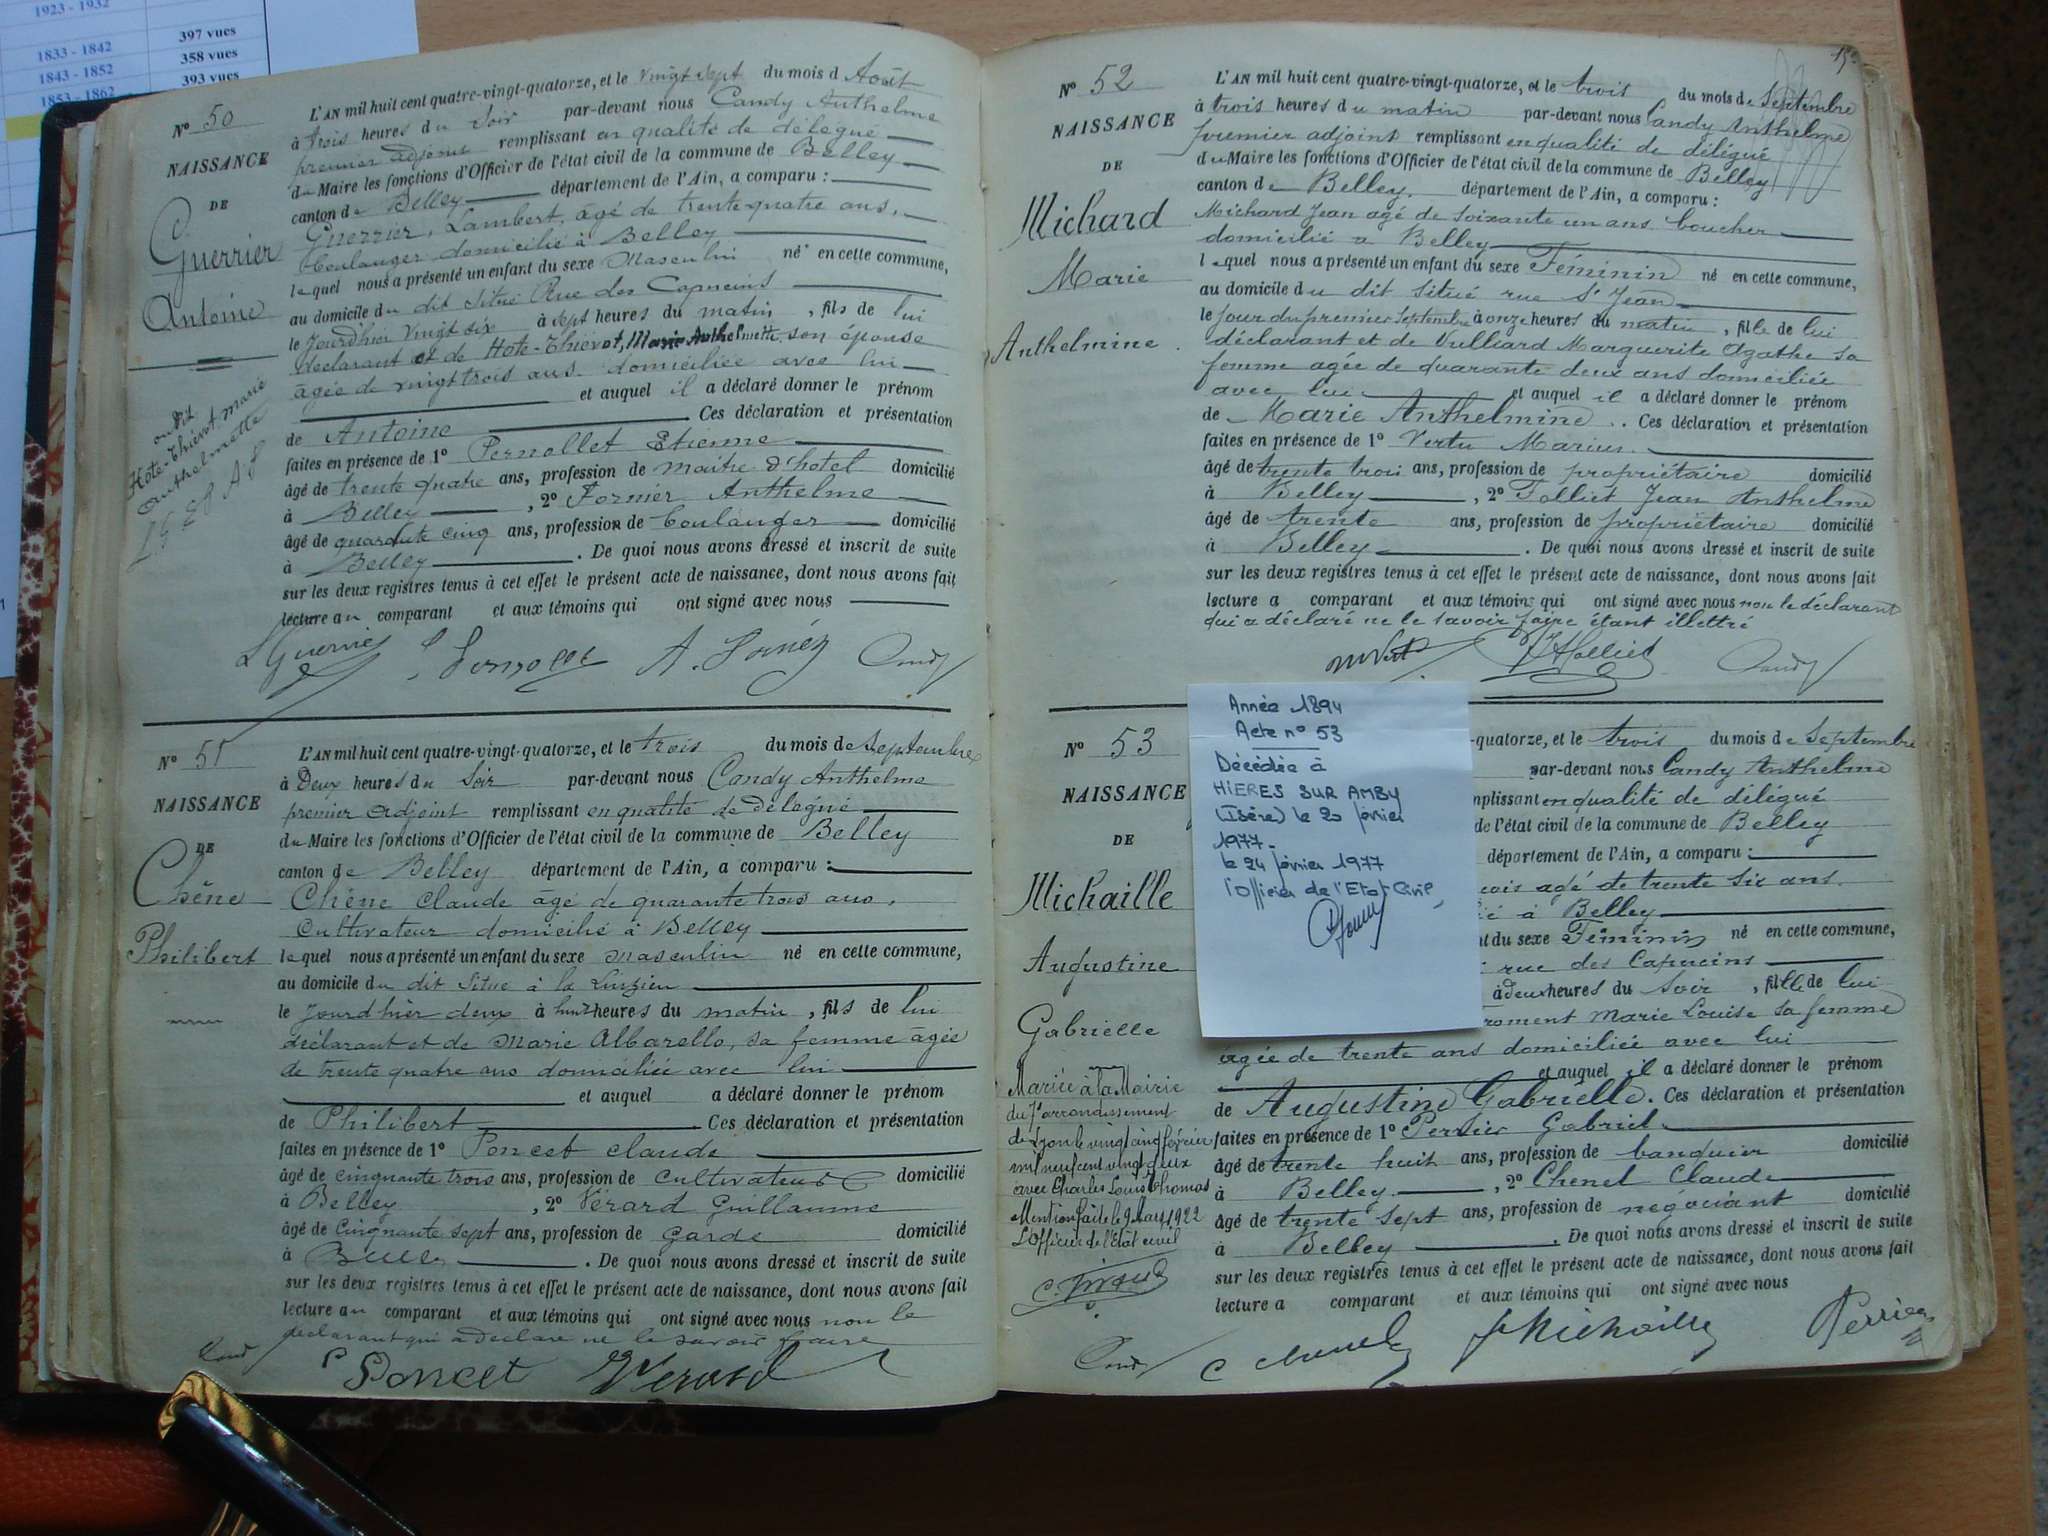 1923 - 1932
1833 - 1842 397 vues
1843 - 1852 358 vues
1853 - 1862 393 vues
N° 50
NAISSANCE
DE
Guerrier
Antoine
on dit
Hote-Thiévot, Marie
Anthelmette
L'AN mil huit cent quatre-vingt-quatorze, et le vingt sept du mois d Août
à trois heures du Soir par-devant nous Candy Anthelme
premier adjoint remplissant en qualité de délégué
du Maire les fonctions d'Officier de l'état civil de la commune de Belley
canton de Belley département de l'Ain, a comparu :
Guerrier, Lambert, âgé de trente-quatre ans,
boulanger domicilié à Belley
lequel nous a présenté un enfant du sexe Masculin né en cette commune,
au domicile du dit Situé Rue des Capucins
le Jourd'hier vingt six à sept heures du matin , fils de lui
déclarant et de Hote-Thiévot, Marie Anthelmette son épouse
âgée de vingt trois ans domiciliée avec lui
et auquel il a déclaré donner le prénom
de Antoine . Ces déclaration et présentation
faites en présence de 1° Pernollet Etienne
âgé de trente quatre ans, profession de maitre d'hotel domicilié
à Belley , 2° Fornier Anthelme
âgé de quarante cinq ans, profession de boulanger domicilié
à Belley . De quoi nous avons dressé et inscrit de suite
sur les deux registres tenus à cet effet le présent acte de naissance, dont nous avons fait
lecture au comparant et aux témoins qui ont signé avec nous
L Guerrier Candy
N° 51
NAISSANCE
DE
Chêne
Philibert
L'AN mil huit cent quatre-vingt-quatorze, et le trois du mois de Septembre
à Deux heures du Soir par-devant nous Candy Anthelme
premier adjoint remplissant en qualité de délégué
du Maire les fonctions d'Officier de l'état civil de la commune de Belley
canton de Belley département de l'Ain, a comparu :
Chêne Claude âgé de quarante trois ans,
Cultivateur domicilié à Belley
lequel nous a présenté un enfant du sexe masculin né en cette commune,
au domicile du dit Situé à la
le Jourd'hier deux à heures du matin , fils de lui
déclarant et de Marie Albarello, sa femme âgée
de trente quatre ans domiciliée avec lui
et auquel a déclaré donner le prénom
de Philibert . Ces déclaration et présentation
faites en présence de 1° Poncet Claude
âgé de cinquante trois ans, profession de cultivateur domicilié
à Belley , 2° Vérard Guillaume
âgé de Cinquante sept ans, profession de Garde domicilié
à Belley . De quoi nous avons dressé et inscrit de suite
sur les deux registres tenus à cet effet le présent acte de naissance, dont nous avons fait
lecture au comparant et aux témoins qui ont signé avec nous non le
déclarant qui a déclaré ne le savoir faire
Cand Poncet Verard
N° 52
NAISSANCE
DE
Michard
Marie
Anthelmine
L'AN mil huit cent quatre-vingt-quatorze, et le trois du mois de Septembre
à trois heures du matin par-devant nous Candy Anthelme
premier adjoint remplissant en qualité de délégué
du Maire les fonctions d'Officier de l'état civil de la commune de Belley
canton de Belley département de l'Ain, a comparu :
Michard Jean agé de soixante un ans boucher
domicilié a Belley
lequel nous a présenté un enfant du sexe Féminin né en cette commune,
au domicile du dit situé rue St Jean
le jour du premier septembre à onze heures du matin , fille de lui
déclarant et de Vulliard Marguerite Agathe sa
femme agée de quarante deux ans domiciliée
avec lui et auquel il a déclaré donner le prénom
de Marie Anthelmine . Ces déclaration et présentation
faites en présence de 1° Vertu Marius
âgé de trente trois ans, profession de propriétaire domicilié
à Belley , 2° Tolliet Jean Anthelme
âgé de trente ans, profession de propriétaire domicilié
à Belley . De quoi nous avons dressé et inscrit de suite
sur les deux registres tenus à cet effet le présent acte de naissance, dont nous avons fait
lecture a comparant et aux témoins qui ont signé avec nous non le déclarant
qui a déclaré ne le savoir faire étant illettré
Candy
N° 53
NAISSANCE
DE
Michaille
Augustine
Gabrielle
Mariée à la Mairie
du 7e arrondissement
de Lyon le vingt cinq février
mil neuf cent vingt deux
avec Charles Louis Thomas
Mention faite le 9 mars 1922
L'Officier de l'état civil
Année 1894
Acte n° 53
Décédée à
HIERES SUR AMBY
(Isère) le 20 février
1977.
le 24 février 1977
l'Officier de l'Etat Civil,
-quatorze, et le trois du mois de Septembre
par-devant nous Candy Anthelme
mplissant en qualité de délégué
de l'état civil de la commune de Belley
département de l'Ain, a comparu :
cois agé de trente six ans
ié à Belley
nt du sexe Féminin né en cette commune,
rue des Capucins
à deux heures du soir , fille de lui
roment Marie Louise sa femme
agée de trente ans domiciliée avec lui
et auquel il a déclaré donner le prénom
de Augustine Gabrielle . Ces déclaration et présentation
faites en présence de 1° Perrier Gabriel
âgé de trente huit ans, profession de banquier domicilié
à Belley , 2° Chenel Claude
âgé de trente sept ans, profession de négociant domicilié
à Belley . De quoi nous avons dressé et inscrit de suite
sur les deux registres tenus à cet effet le présent acte de naissance, dont nous avons fait
lecture a comparant et aux témoins qui ont signé avec nous
Cand C Chenel Michaille Perrier